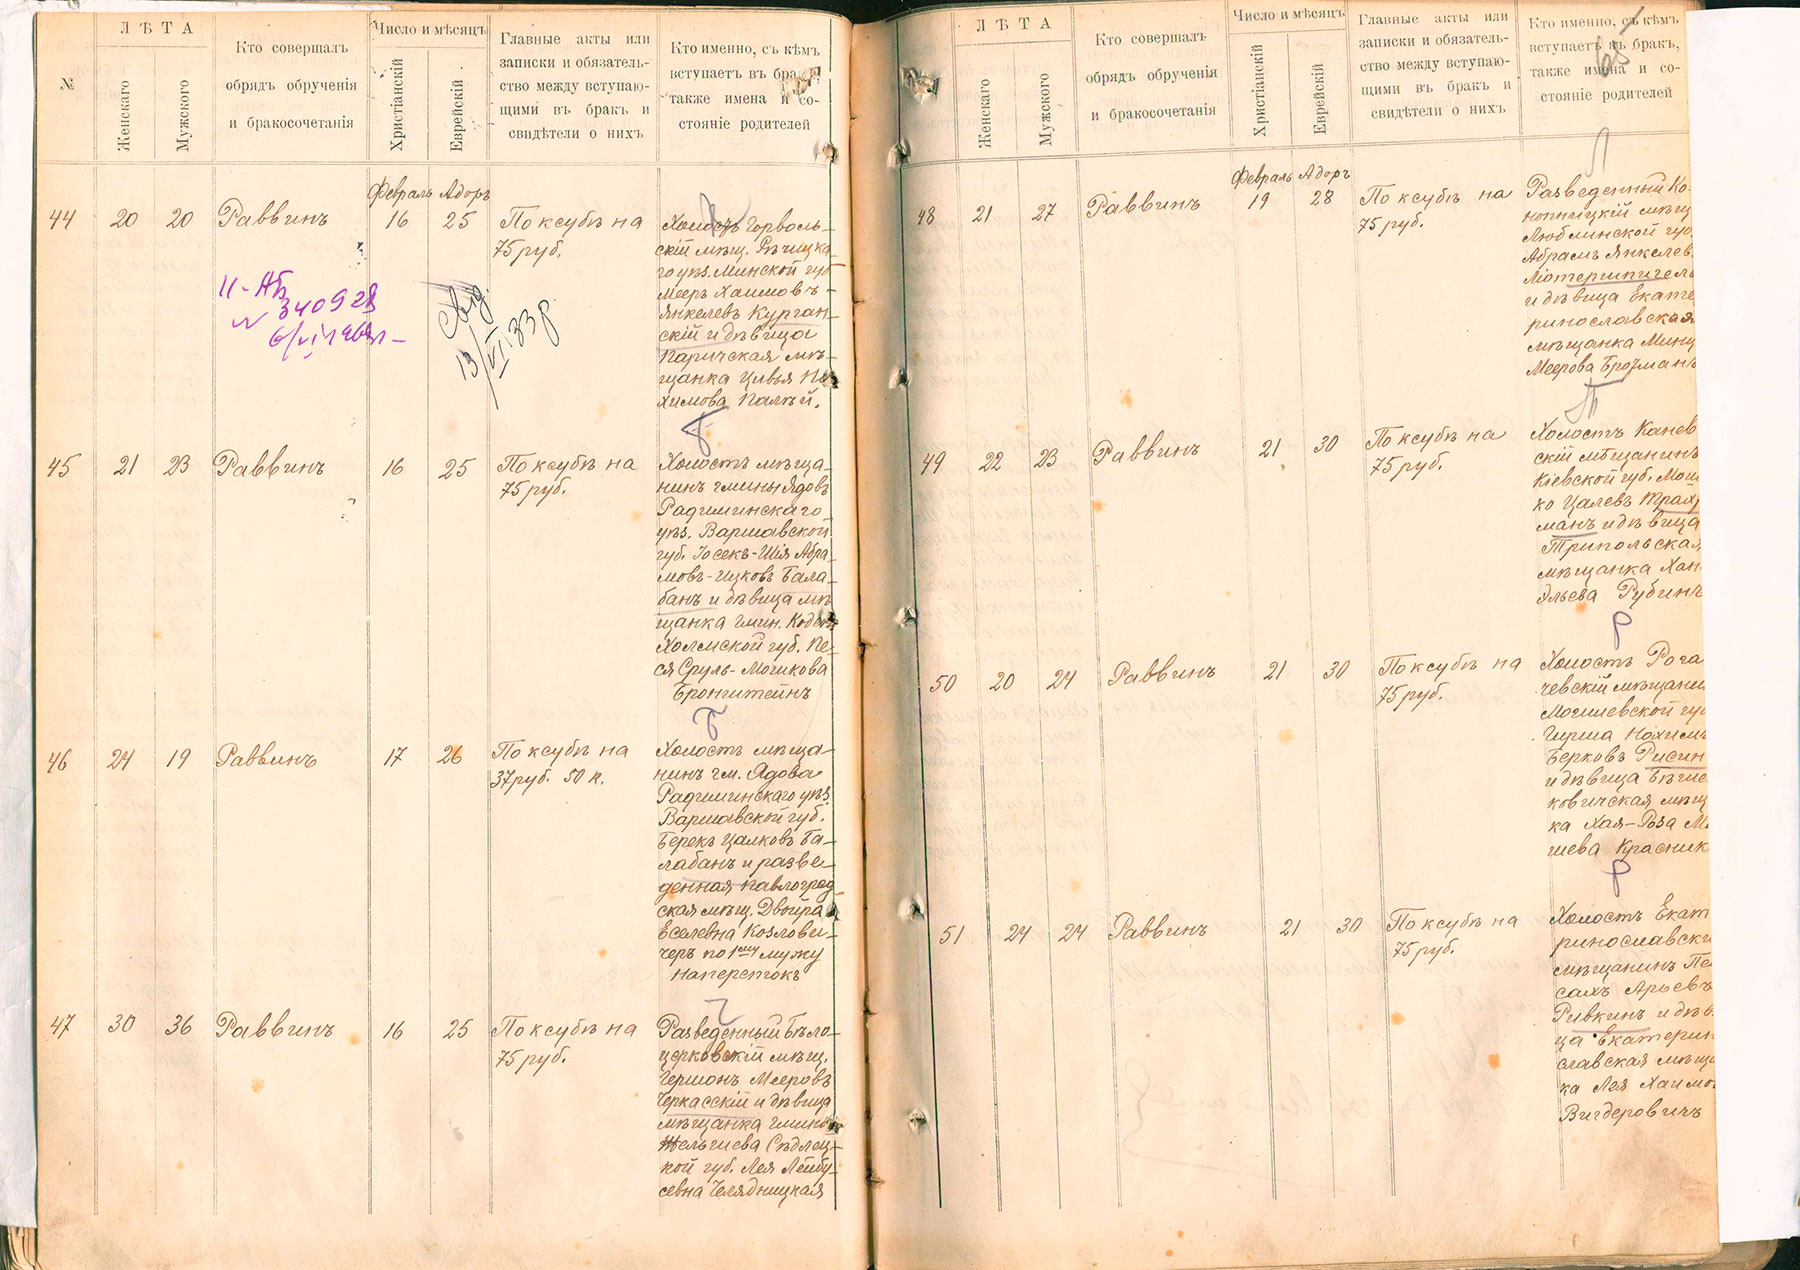 №
ЛѢТА
Женскаго
Мужского
Кто совершалъ
обрядъ обрученія
и бракосочетанія
Число и мѣсяцъ
Христіанскій
Еврейскій
Главные акты или
записки и обязатель-
ство между вступаю-
щими въ бракъ и
свидѣтели о нихъ
Кто именно, съ кѣмъ
вступаетъ въ бракъ,
также имена и со-
стояніе родителей
Февраль Адоръ
44 20 20 Раввинъ 16 25 По ксубѣ на
75 руб.
Холостъ Горволь-
скій мѣщ. Рѣчицка-
го уѣз. Минской губ
Мееръ Хаимовъ-
Янкелевъ Курган-
скій и дѣвица
Паричская мѣ-
щанка Цивья
химова Палѣй.
свид.
13/VI 33 р
45 21 23 Раввинъ 16 25 По ксубѣ на
75 руб.
Холостъ мѣща-
нинъ гмины Ядовъ
Радиминскаго
уѣз. Варшавской
губ. Іосекъ-Шія Абра-
мовъ-Ицковъ Бала-
банъ и дѣвица мѣ
щанка гмин.
Холмской губ. Пе-
ся Сруль-Мошкова
Бронштейнъ
46 24 19 Раввинъ 17 26 По ксубѣ на
37 руб. 50 к.
Холостъ мѣща-
нинъ гм. Ядова
Радиминскаго уѣз.
Варшавской губ.
Берекъ Цалковъ Ба-
лабанъ и разве-
денная Павлоград-
ская мѣщ. Двойра
Еселевна Козлови-
черъ по 1му мужу
Наперстокъ
47 30 36 Раввинъ 16 25 По ксубѣ на
75 руб.
Разведенный Бѣло-
церковскій мѣщ.
Гершонъ Мееровъ
Черкасскій и дѣвица
мѣщанка гмины
Сѣдлец-
кой губ. Лея Лейбу-
севна Челядницкая
ЛѢТА
Женскаго
Мужского
Кто совершалъ
обрядъ обрученія
и бракосочетанія
Число и мѣсяцъ
Христіанскій
Еврейскій
Главные акты или
записки и обязатель-
ство между вступаю-
щими въ бракъ и
свидѣтели о нихъ
Кто именно, съ кѣмъ
вступаетъ въ бракъ,
также имена и со-
стояніе родителей
Февраль Адоръ
48 21 27 Раввинъ 19 28 По ксубѣ на
75 руб.
Разведенный Ко-
нопницкій мѣщ
Люблинской губ.
Абрамъ Янкелев
и дѣвица Екате
ринославская
мѣщанка Минц
Меерова Бройманъ
49 22 23 Раввинъ 21 30 По ксубѣ на
75 руб.
Холостъ Канев
скій мѣщанинъ
Кіевской губ. Мош
ко Цалевъ Трах
манъ и дѣвица
Трипольская
мѣщанка Хан
Эльева Рубинъ
50 20 24 Раввинъ 21 30 По ксубѣ на
75 руб.
Холостъ Рога
чевскій мѣщанин
Могилевской гу
Гирша Нохим
Берковъ Рисин
и дѣвица
ковичская мѣщ
ка Хая-Роза
Красник
51 24 24 Раввинъ 21 30 По ксубѣ на
75 руб.
Холостъ Екат
ринославск
мѣщанинъ Пе
сахъ Арьевъ
Ривкинъ и дѣв
ца Екатерин
славская мѣщ
ка Лея Хаимо
Вигдеровичъ